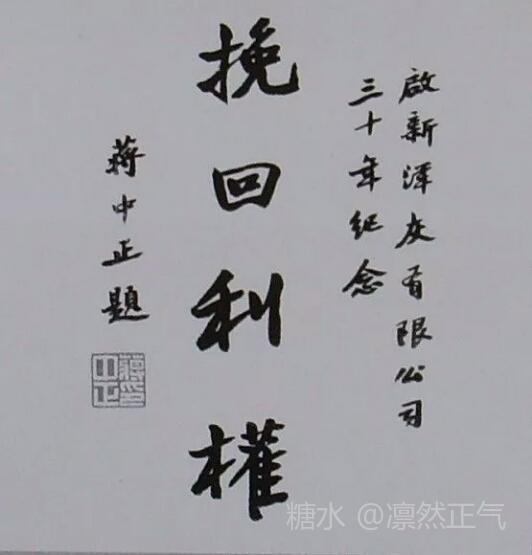 啟新洋灰有限公司
三十年紀念
挽回利權
蔣中正題
蔣中正印
糖水 @凛然正气